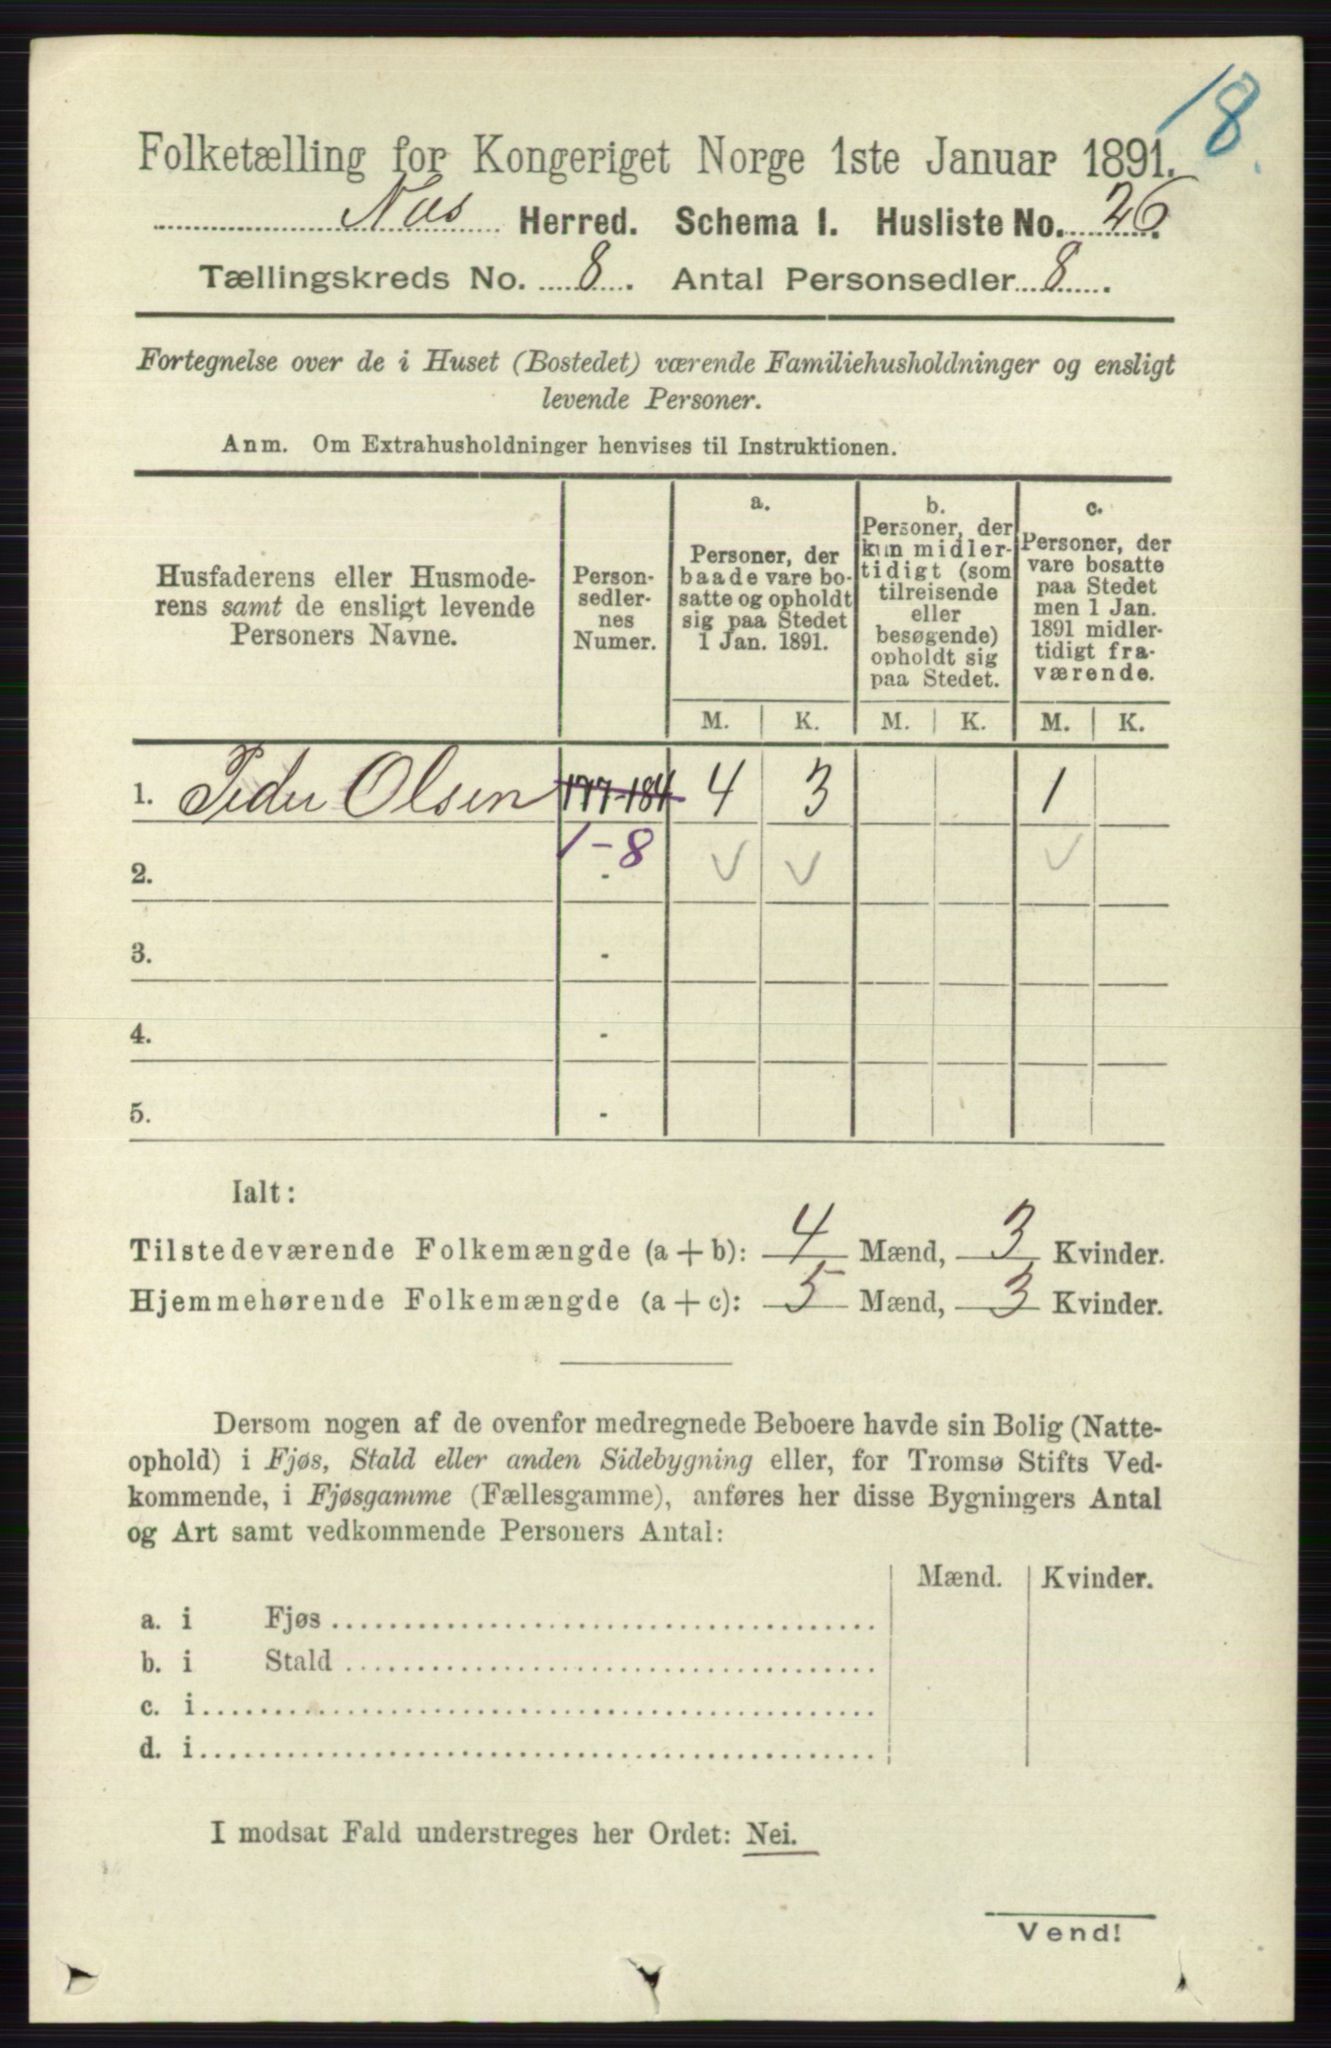 18
Folketælling for Kongeriget Norge 1ste Januar 1891.
Næs Herred. Schema I. Husliste No. 26.
Tællingskreds No. 8. Antal Personsedler 8.
Fortegnelse over de i Huset (Bostedet) værende Familiehusholdninger og ensligt
levende Personer.
Anm. Om Extrahusholdninger henvises til Instruktionen.
Husfaderens eller Husmode-
rens samt de ensligt levende
Personers Navne.
Person-
sedler-
nes
Numer.
a.
Personer, der
baade vare bo-
satte og opholdt
sig paa Stedet
1 Jan. 1891.
b.
Personer, der
kun midler-
tidigt (som
tilreisende
eller
besøgende)
opholdt sig
paa Stedet.
c.
Personer, der
vare bosatte
paa Stedet
men 1 Jan.
1891 midler-
tidigt fra-
værende.
M. K. M. K. M. K.
1. Peder Olsen 177-184 4 3 1
1-8
2. -
3. -
4. -
5. -
Ialt:
Tilstedeværende Folkemængde (a + b): 4 Mænd, 3 Kvinder.
Hjemmehørende Folkemængde (a + c): 5 Mænd, 3 Kvinder.
Dersom nogen af de ovenfor medregnede Beboere havde sin Bolig (Natte-
ophold) i Fjøs, Stald eller anden Sidebygning eller, for Tromsø Stifts Ved-
kommende, i Fjøsgamme (Fællesgamme), anføres her disse Bygningers Antal
og Art samt vedkommende Personers Antal:
Mænd. Kvinder.
a. i Fjøs
b. i Stald
c. i
d. i
I modsat Fald understreges her Ordet: Nei.
Vend!